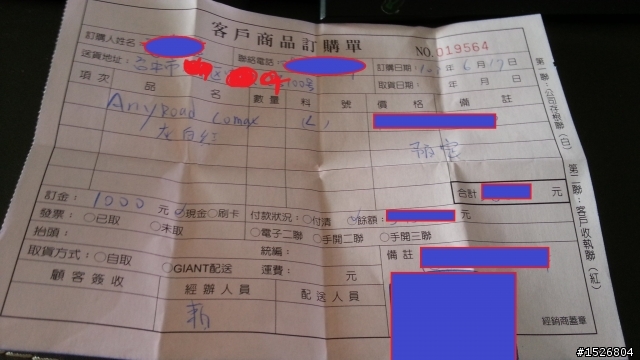 客戶商品訂購單
NO.019564
訂購人姓名： 聯絡電話： 訂購日期： 年 6 月 17 日
送貨地址： 市 区 號 取貨日期： 年 月 日
項次 品名 數量 料號 價格 備註
AnyRoad Comax L,
灰白紅
合計 元
訂金： 1000 元 現金○刷卡 付款狀況：○付清 餘額： 元
發票：○已取 ○未取 ○電子二聯 ○手開二聯 ○手開三聯
抬頭： 統編： 備註
取貨方式：○自取 ○GIANT配送 運費： 元
顧客簽收 經辦人員 配送人員
經銷商蓋章
第一聯：公司存根聯（白） 第二聯：客戶收執聯（紅）
#1526804